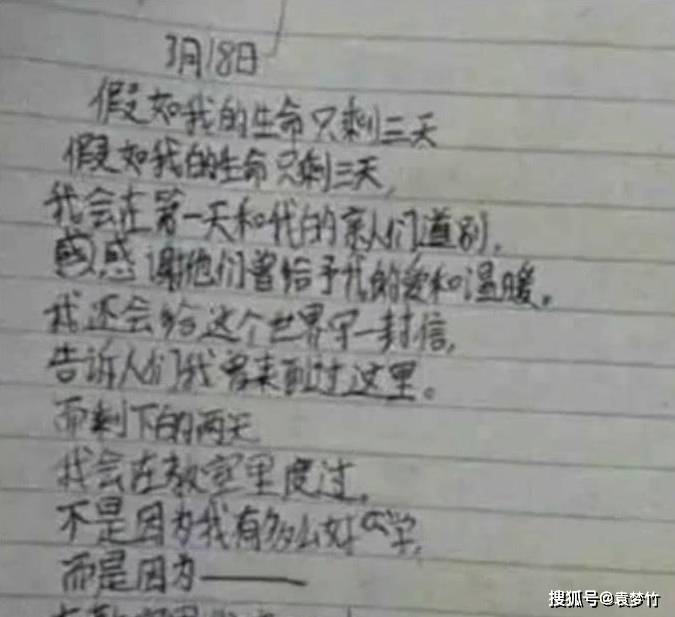 3月18日
假如我的生命只剩三天
假如我的生命只剩三天,
我会在第一天和我的亲人们道别,
感谢他们曾给予我的爱和温暖。
我还会给这个世界写一封信,
告诉人们我曾来到过这里。
而剩下的两天
我会在教室里度过,
不是因为我有多么好学,
而是因为——
搜狐号@袁梦竹